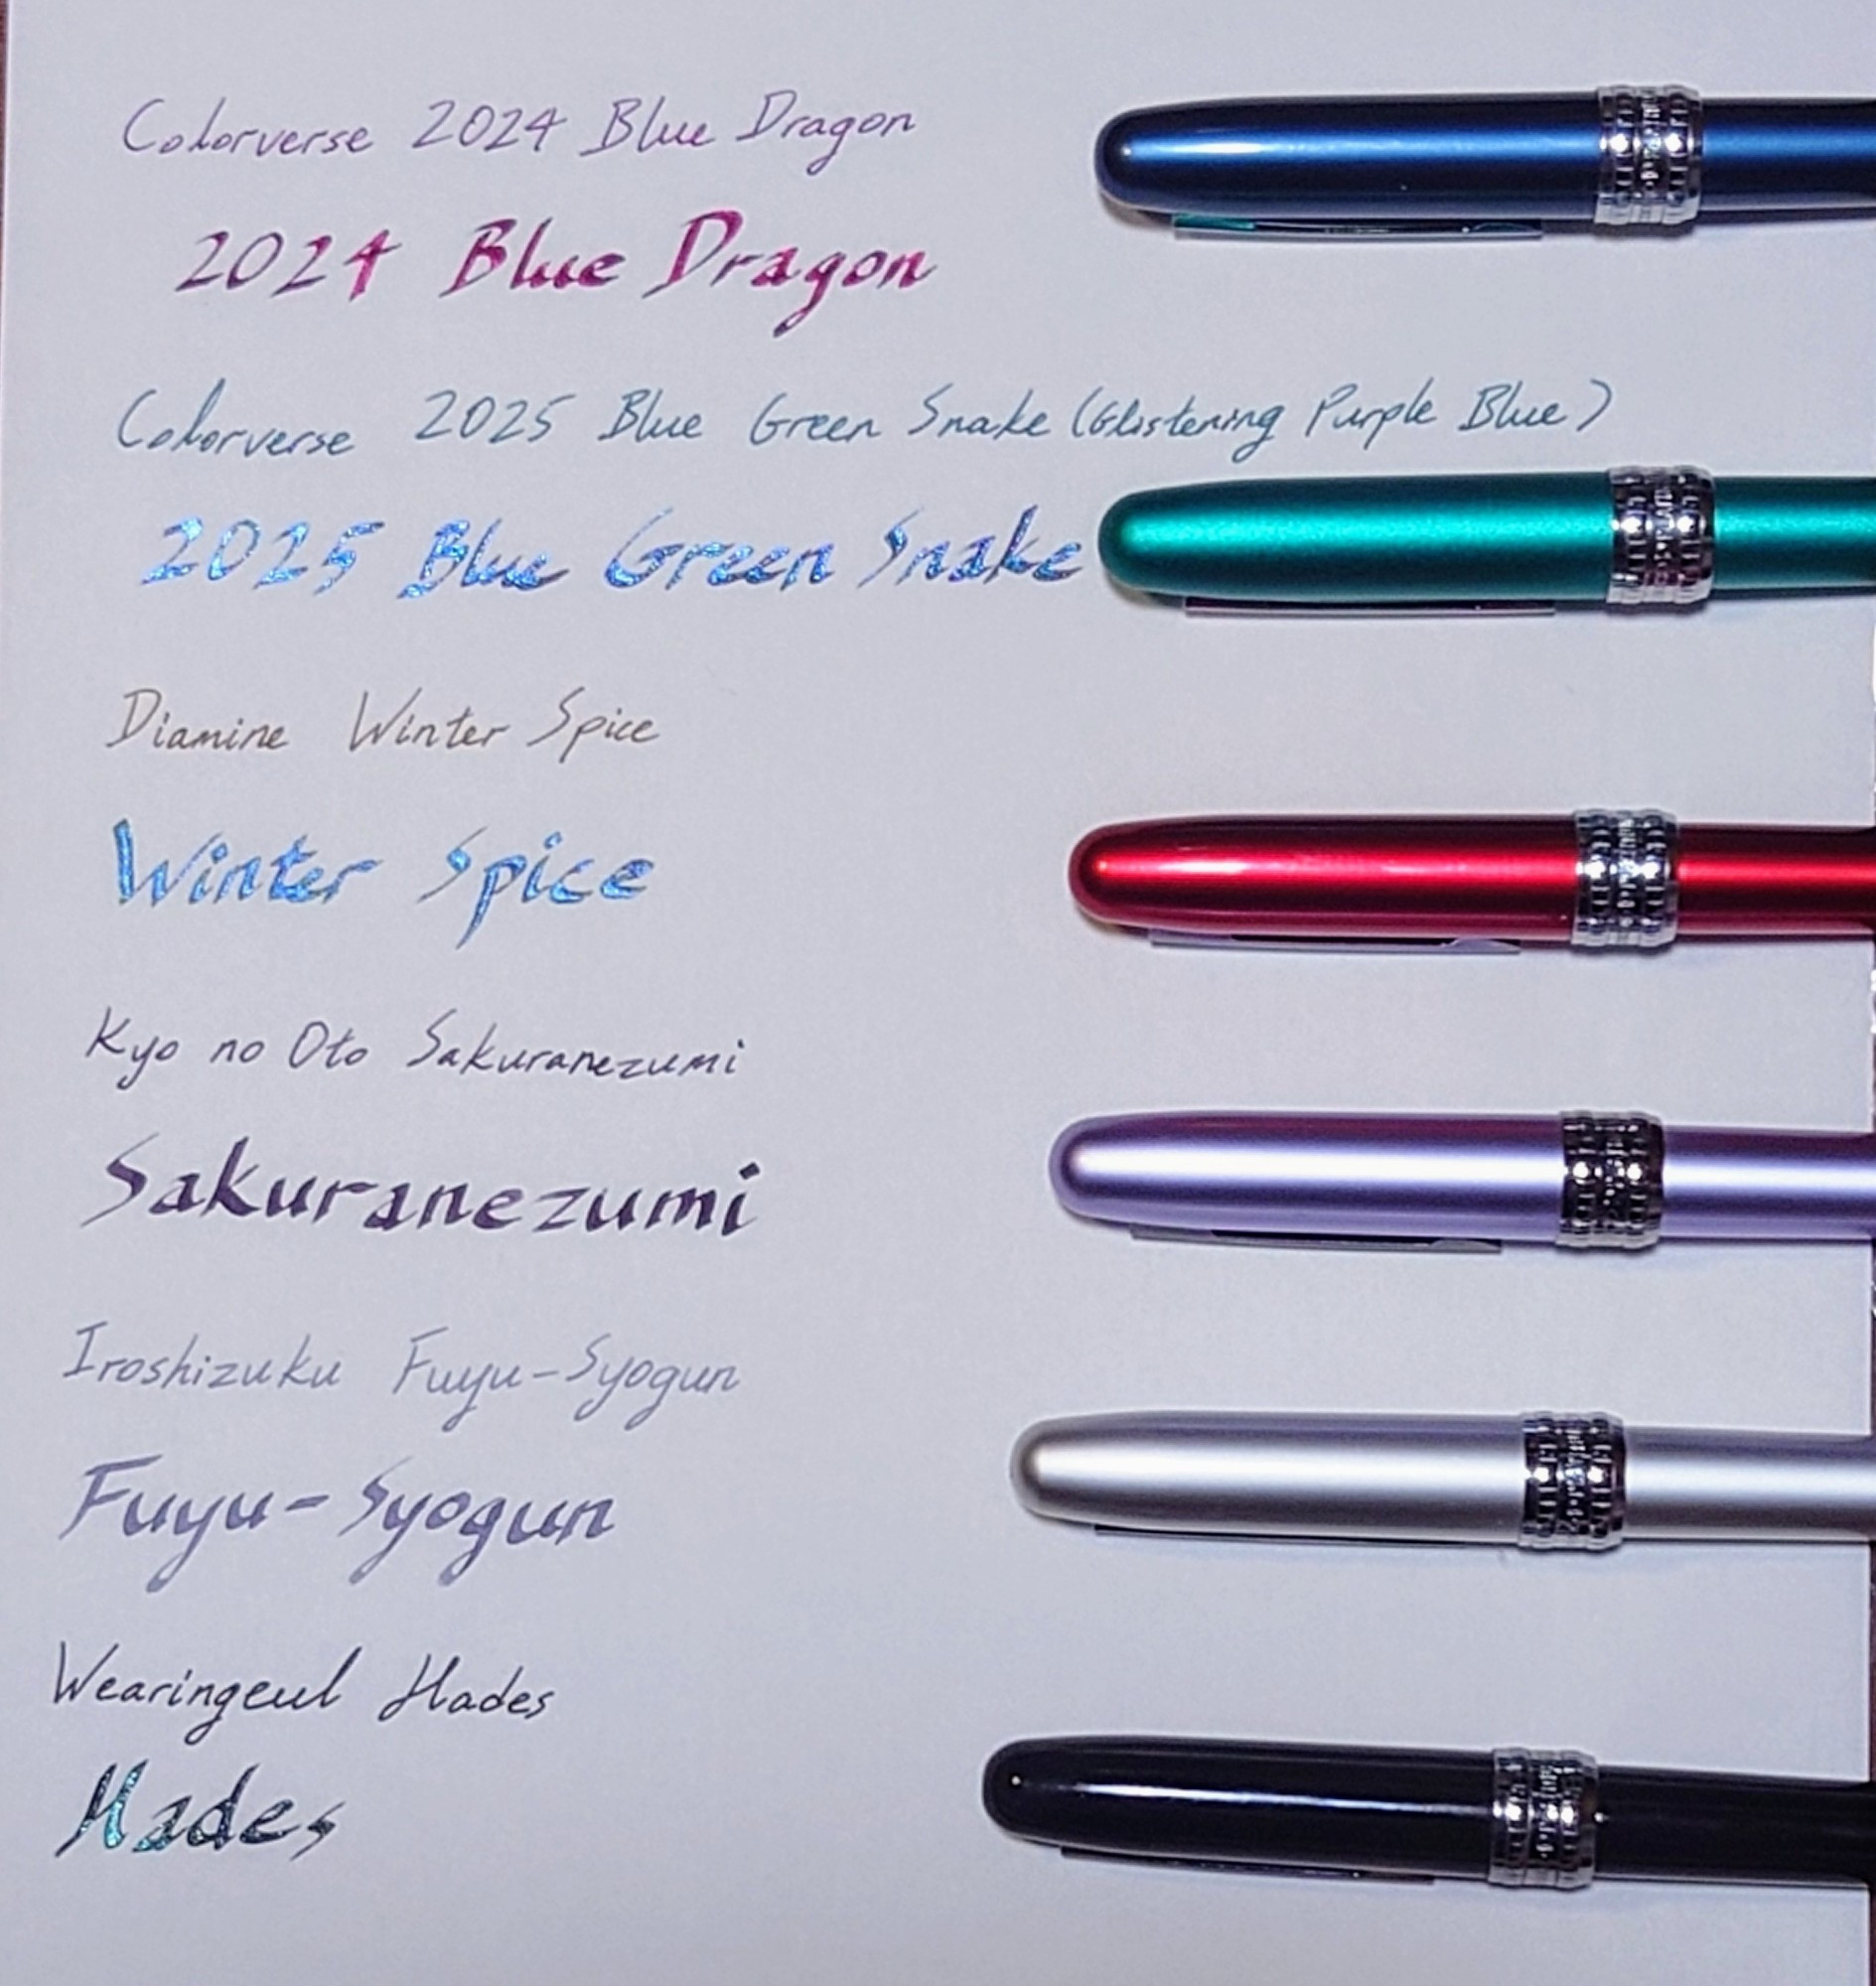 Colorverse 2024 Blue Dragon
2024 Blue Dragon
Colorverse 2025 Blue Green Snake (Glistening Purple Blue)
2025 Blue Green Snake
Diamine Winter Spice
Winter Spice
Kyo no Oto Sakuranezumi
Sakuranezumi
Iroshizuku Fuyu-Syogun
Fuyu-Syogun
Wearingeul Hades
Hades